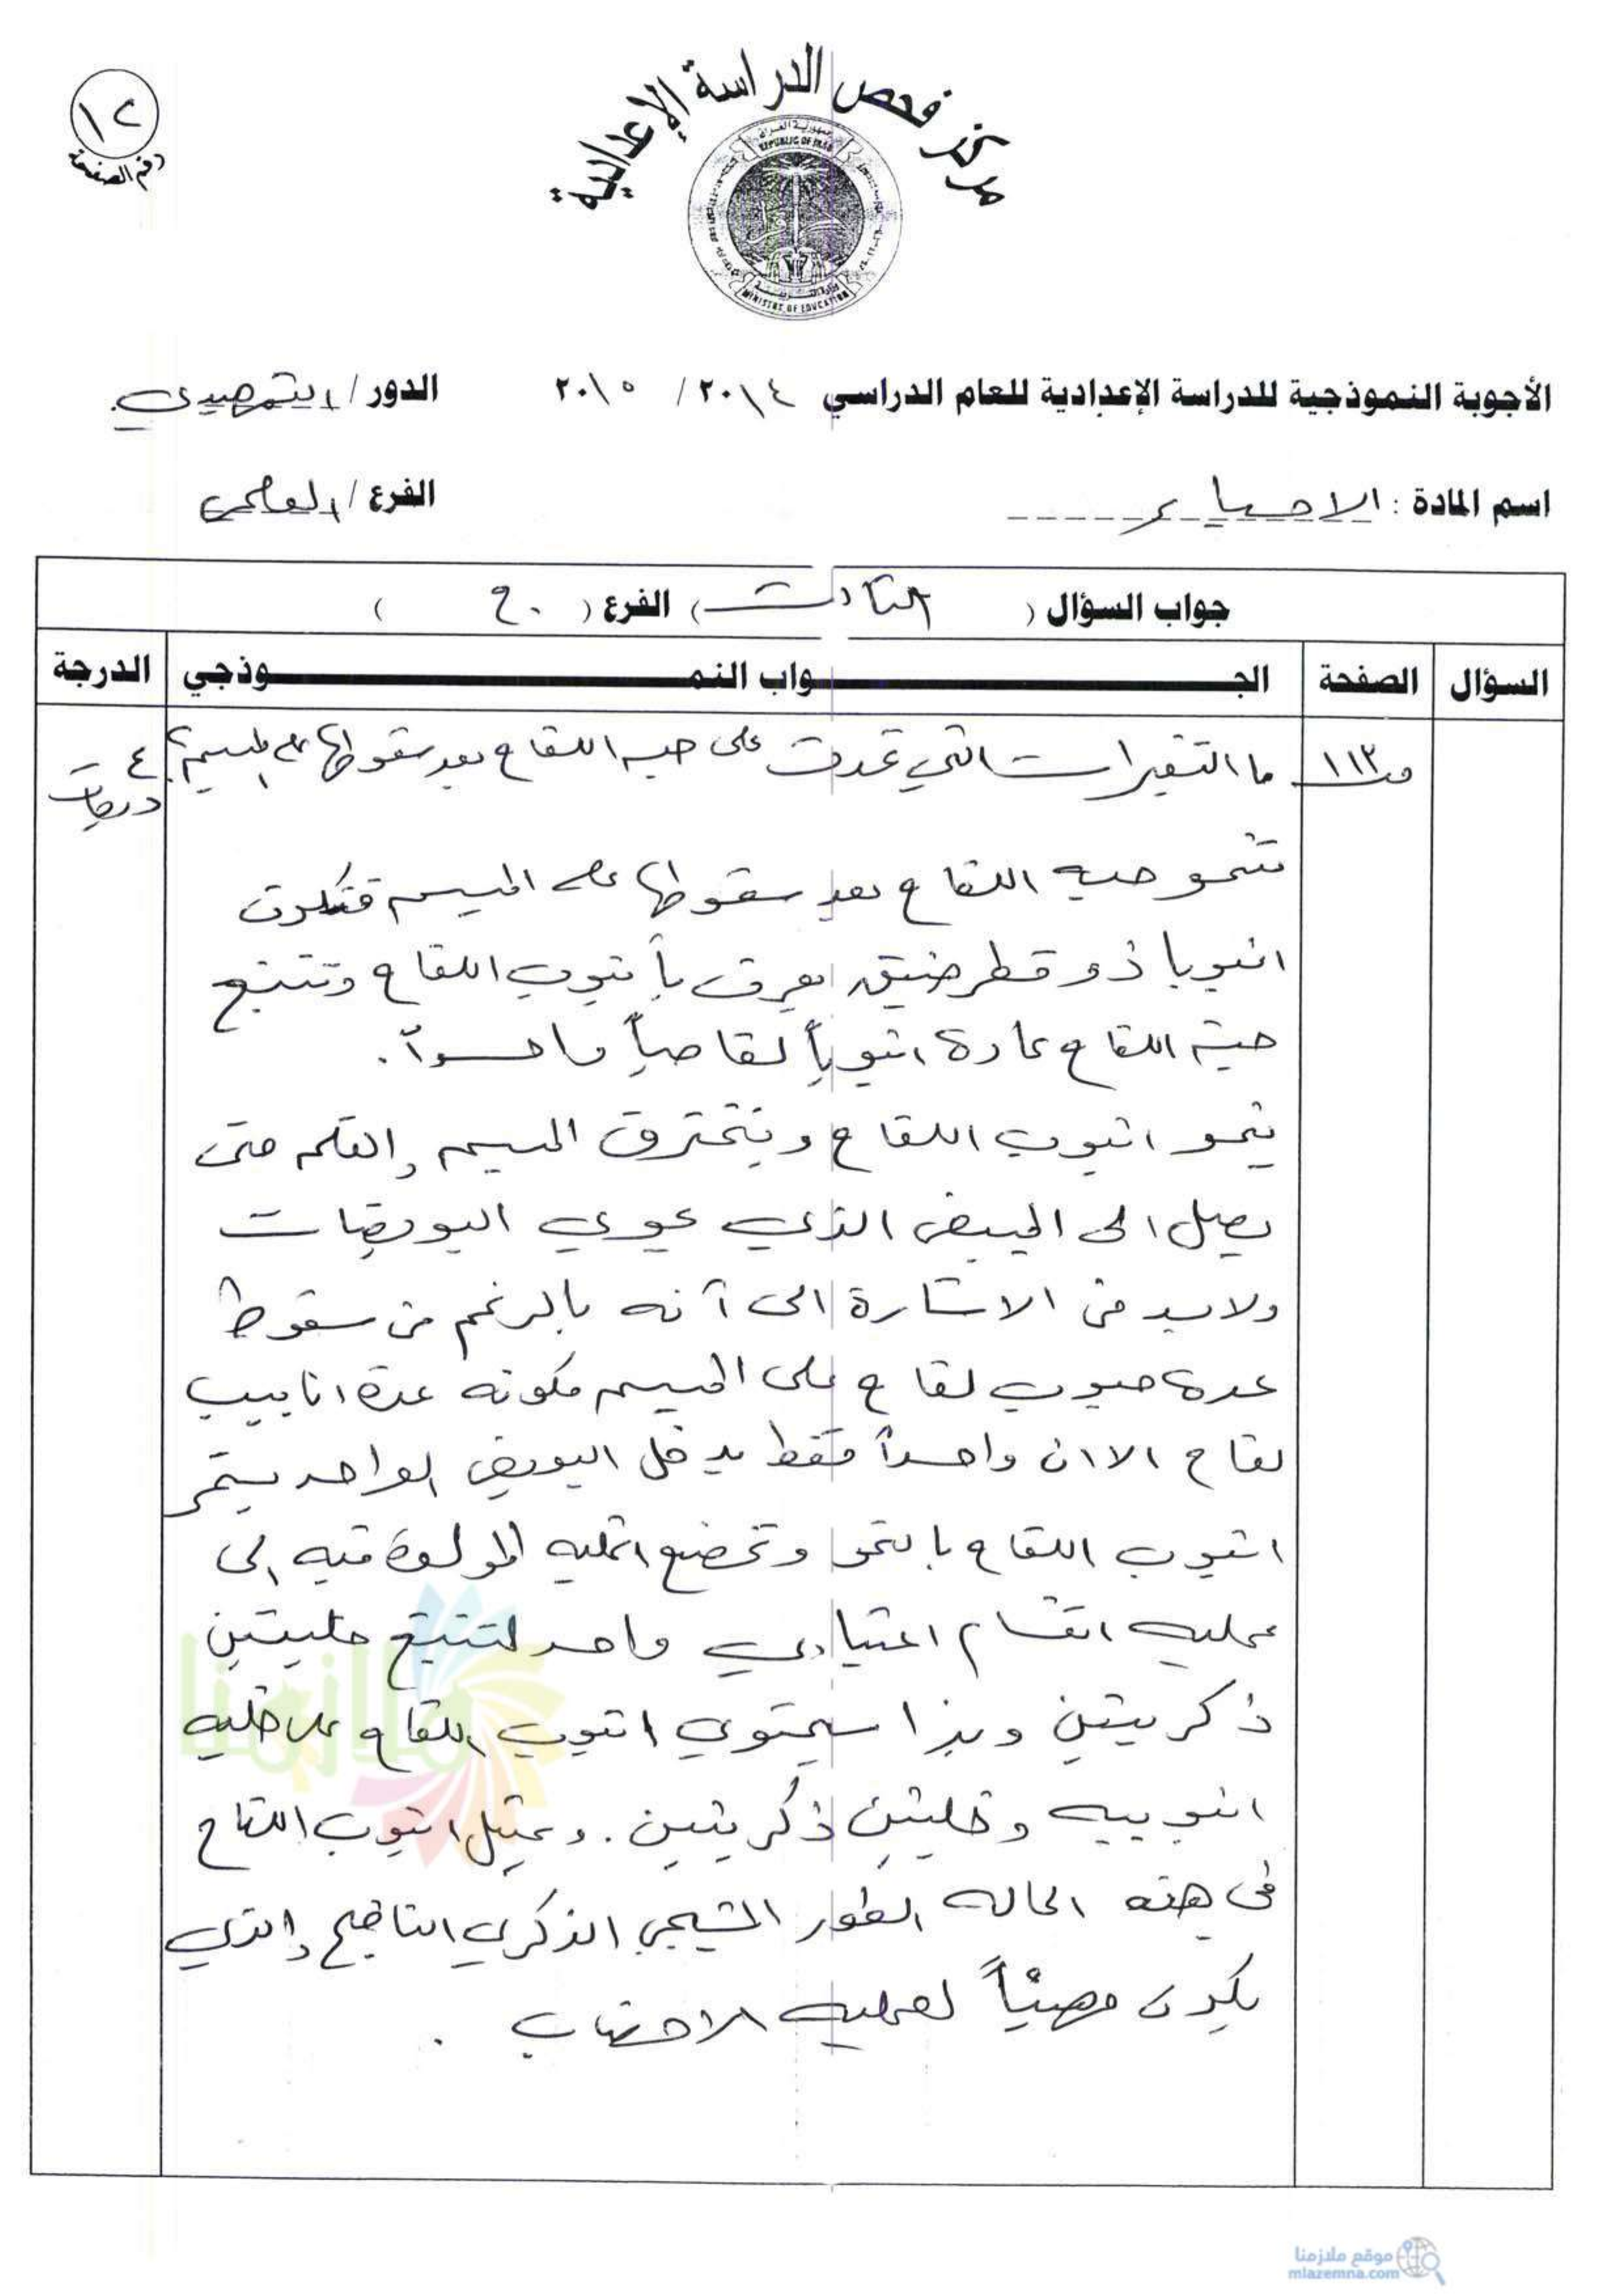 مركز فحص الدراسة الإعدادية
١٢
رقم الصفحة
REPUBLIC OF IRAQ
MINISTRY OF EDUCATION
الأجوبة النموذجية للدراسة الإعدادية للعام الدراسي ٢٠١٤ / ٢٠١٥ الدور / التمهيدي
اسم المادة : الاحياء الفرع / العلمي
جواب السؤال ( الثالث ) الفرع ( ج )
السؤال الصفحة الجـواب النمـوذجي الدرجة
ص١١٣ ما التغيرات التي تحدث على حبه اللقاح بعد سقوطها على الميسم؟ ٤ درجات
تنمو حبه اللقاح بعد سقوطها على الميسم فتكون
انبوبا ذو قطر ضيق يعرف بأنبوب اللقاح وتنتج
حبة اللقاح عادة انبوباً لقاحياً واحداً.
ينمو انبوب اللقاح ويخترق الميسم والقلم حتى
يصل الى المبيض الذي يحوي البويضات
ولابد من الاشارة الى أنه بالرغم من سقوط
عدة حبوب لقاح على الميسم مكونه عدة انابيب
لقاح الا ان واحداً فقط يدخل البويض الواحد يستمر
انبوب اللقاح بالنمو وتخضع الخليه المولدة فيه الى
عمليه انقسام اعتيادي واحد لتنتج خليتين
ذكريتين وبذا سيحتوي انبوب اللقاح على خليه
انبوبيه وخليتين ذكريتين . ويمثل انبوب اللقاح
في هذه الحاله الطور المشيجي الذكري الناضج والذي
يكون مهيئاً لعمليه الاخصاب .
ملازمنا
موقع ملازمنا
mlazemna.com